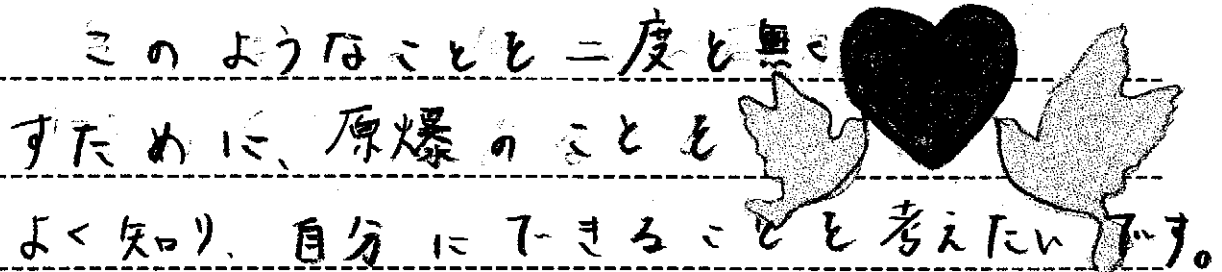 このようなことを二度と無く
すために、原爆のことを
よく知り、自分にできることを考えたいです。